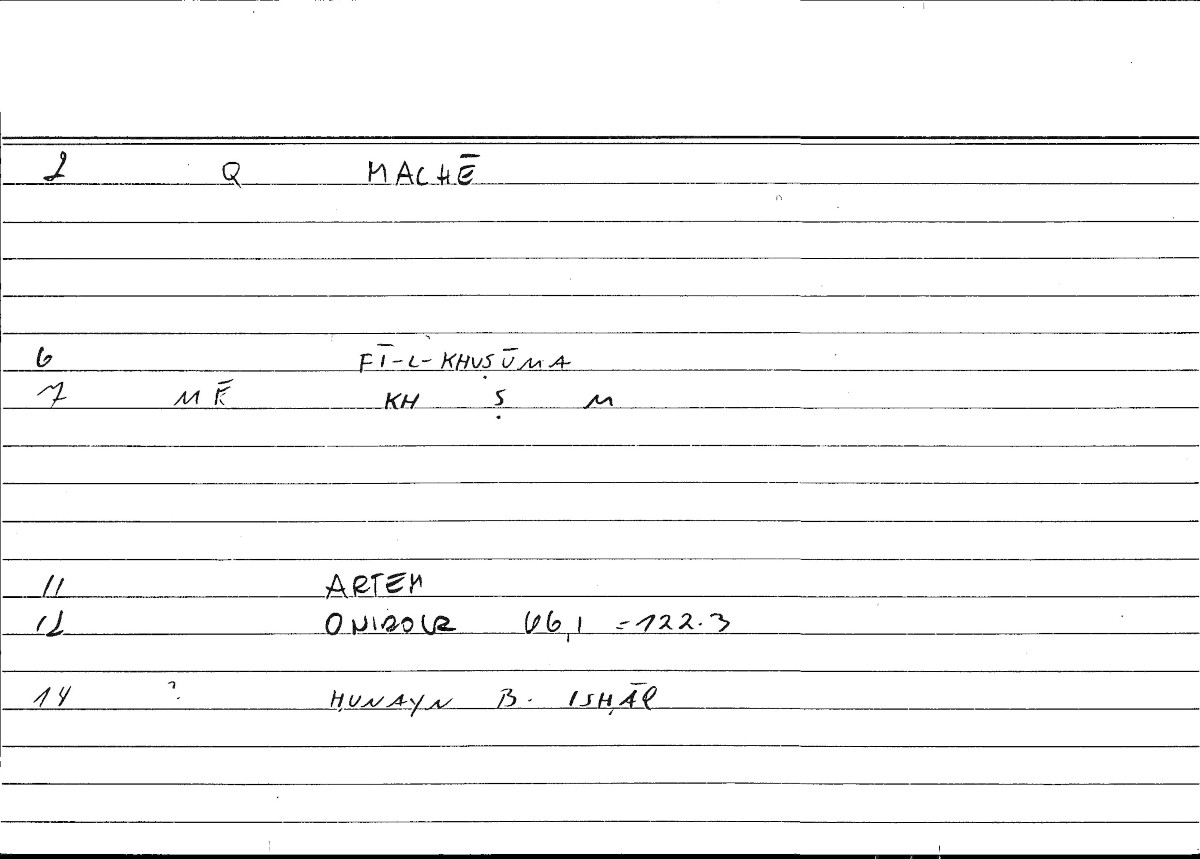 2 Q MACHĒ
6 FĪ-L-KHUṢŪMA
7 MĒ KH Ṣ M
11 ARTEM
12 ONIROCR 66,1 =122.3
14 ? ḤUNAYN B. ISḤĀQ